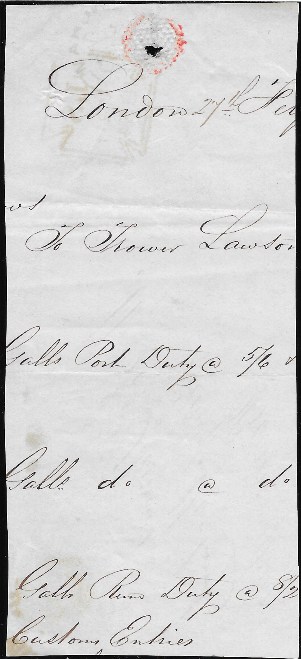 London 27th
To Trower Lawson
Galls Port Duty @ 5/6
Galls do @ do
Galls Rum Duty @ 8/2
Customs Entries